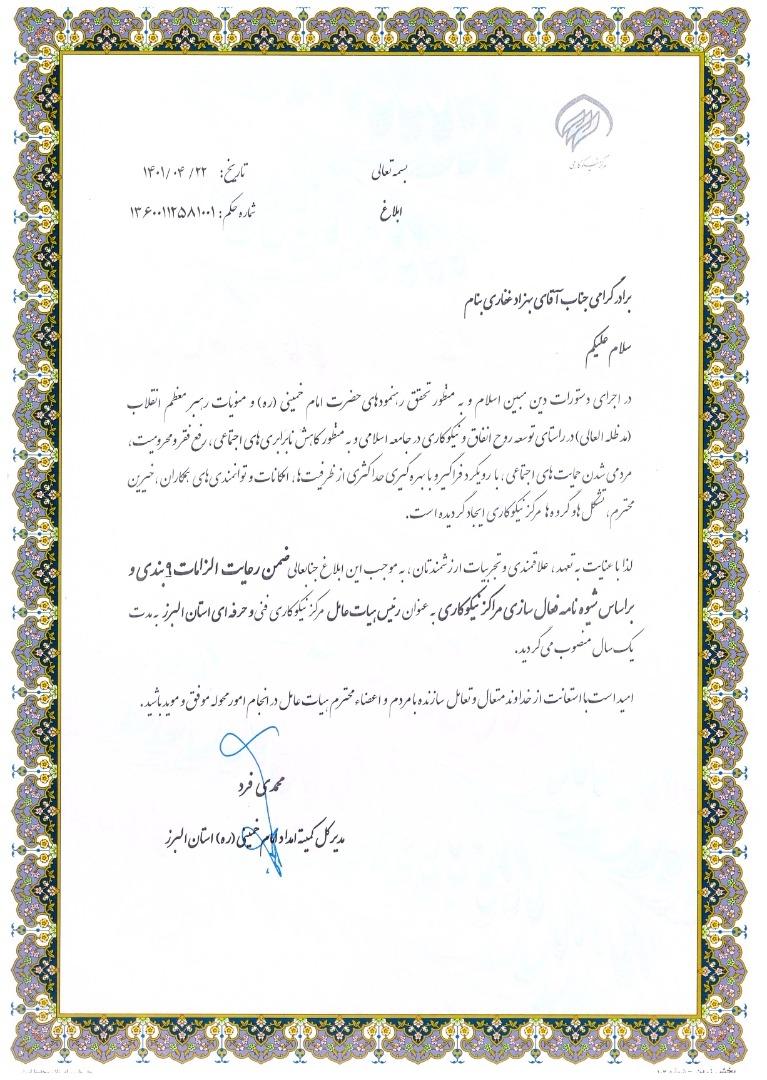 مرکز نیکوکاری
بسمه تعالی
تاریخ: ۱۴۰۱/۰۴/۲۲
ابلاغ
شماره حکم: ۱۳۶۰۰۱۱۲۵۸۱۰۰۱
برادر گرامی جناب آقای بهزاد غفاری بنام
سلام علیکم
در اجرای دستورات دین مبین اسلام و به منظور تحقق رهنمودهای حضرت امام خمینی (ره) و منویات رهبر معظم انقلاب
(مدظله العالی) در راستای توسعه روح انفاق و نیکوکاری در جامعه اسلامی و به منظور کاهش نابرابری های اجتماعی، رفع فقر و محرومیت،
مردمی شدن حمایت های اجتماعی، با رویکرد فراگیر و با بهره گیری حداکثری از ظرفیت ها، امکانات و توانمندی های همکاران، خیرین
محترم، تشکل ها و گروه ها مرکز نیکوکاری ایجاد گردیده است.
لذا با عنایت به تعهد، علاقمندی و تجربیات ارزشمندتان، به موجب این ابلاغ جنابعالی ضمن رعایت الزامات ۹ بندی و
براساس شیوه نامه فعال سازی مراکز نیکوکاری به عنوان رئیس هیات عامل مرکز نیکوکاری فنی و حرفه ای استان البرز به مدت
یک سال منصوب می گردید.
امید است با استعانت از خداوند متعال و تعامل سازنده با مردم و اعضاء محترم هیات عامل در انجام امور محوله موفق و موید باشید.
محمدی فرد
مدیرکل کمیته امداد امام خمینی (ره) استان البرز